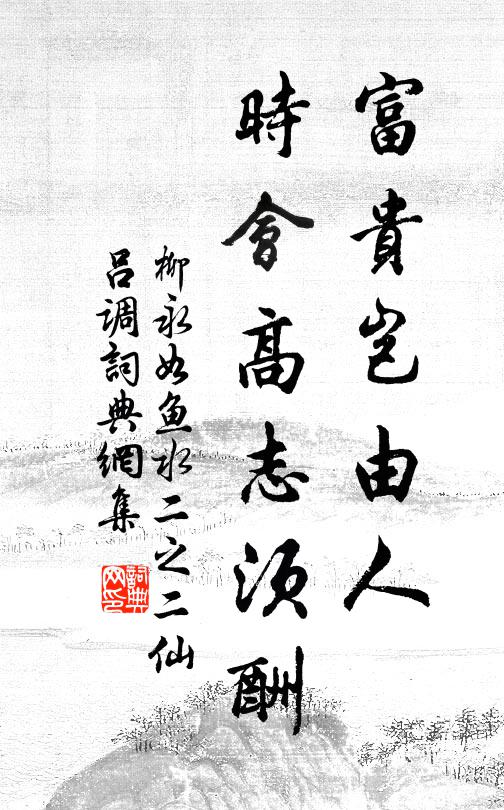 富貴豈由人
時會高志須酬
柳永如魚水二之二仙
呂調詞典網集
詞典
网印